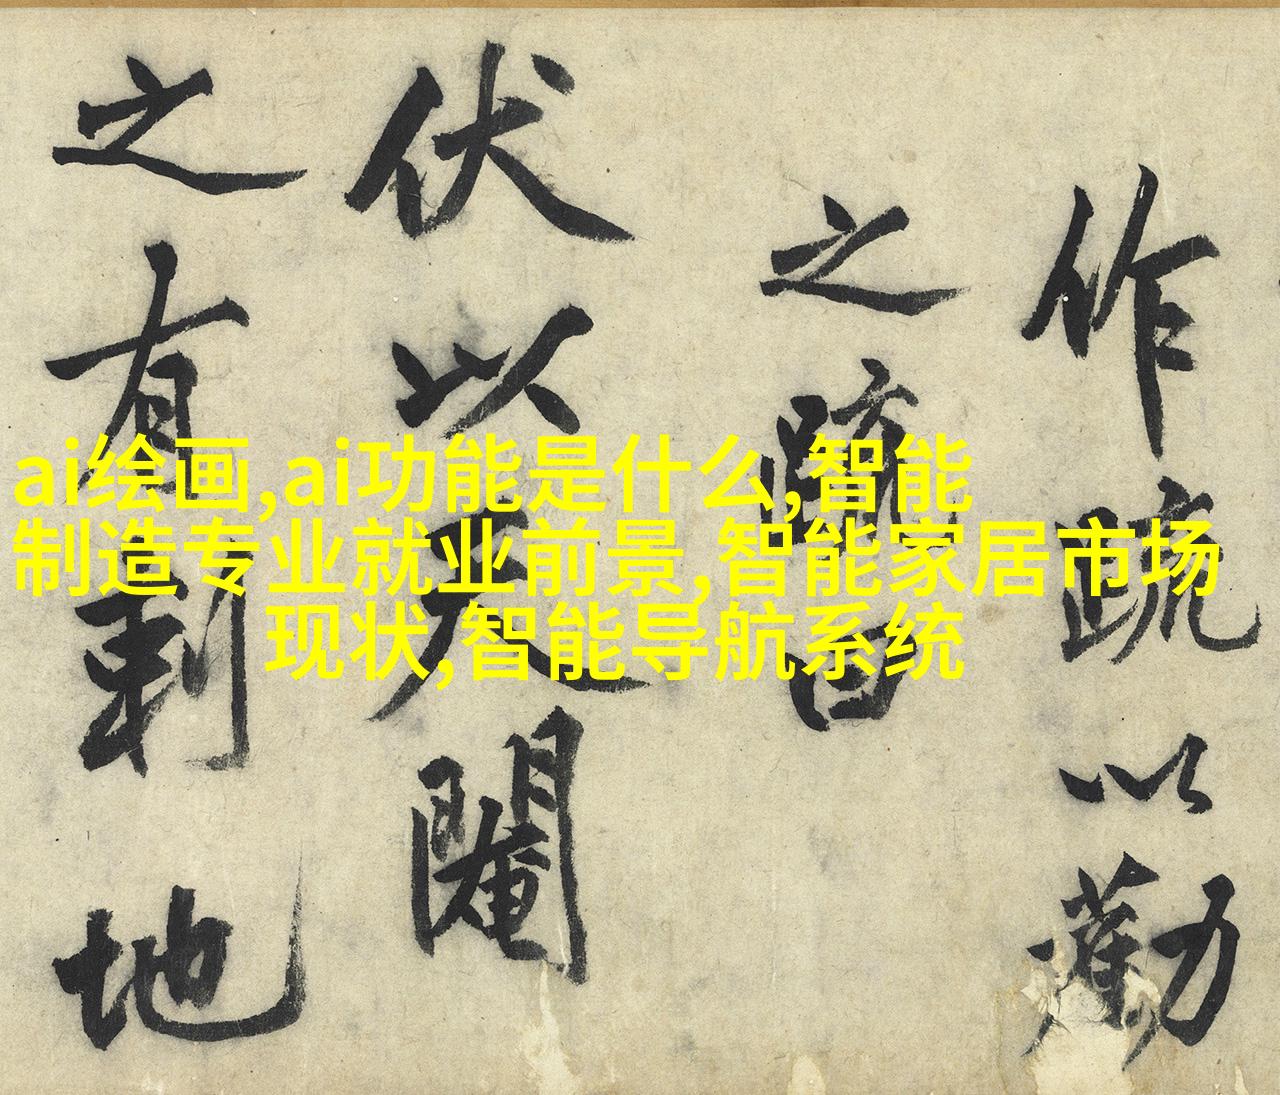 作疏以勸
之疏曰
伏以天閹
之有剩地
ai绘画,ai功能是什么,智能
制造专业就业前景,智能家居市场
现状,智能导航系统